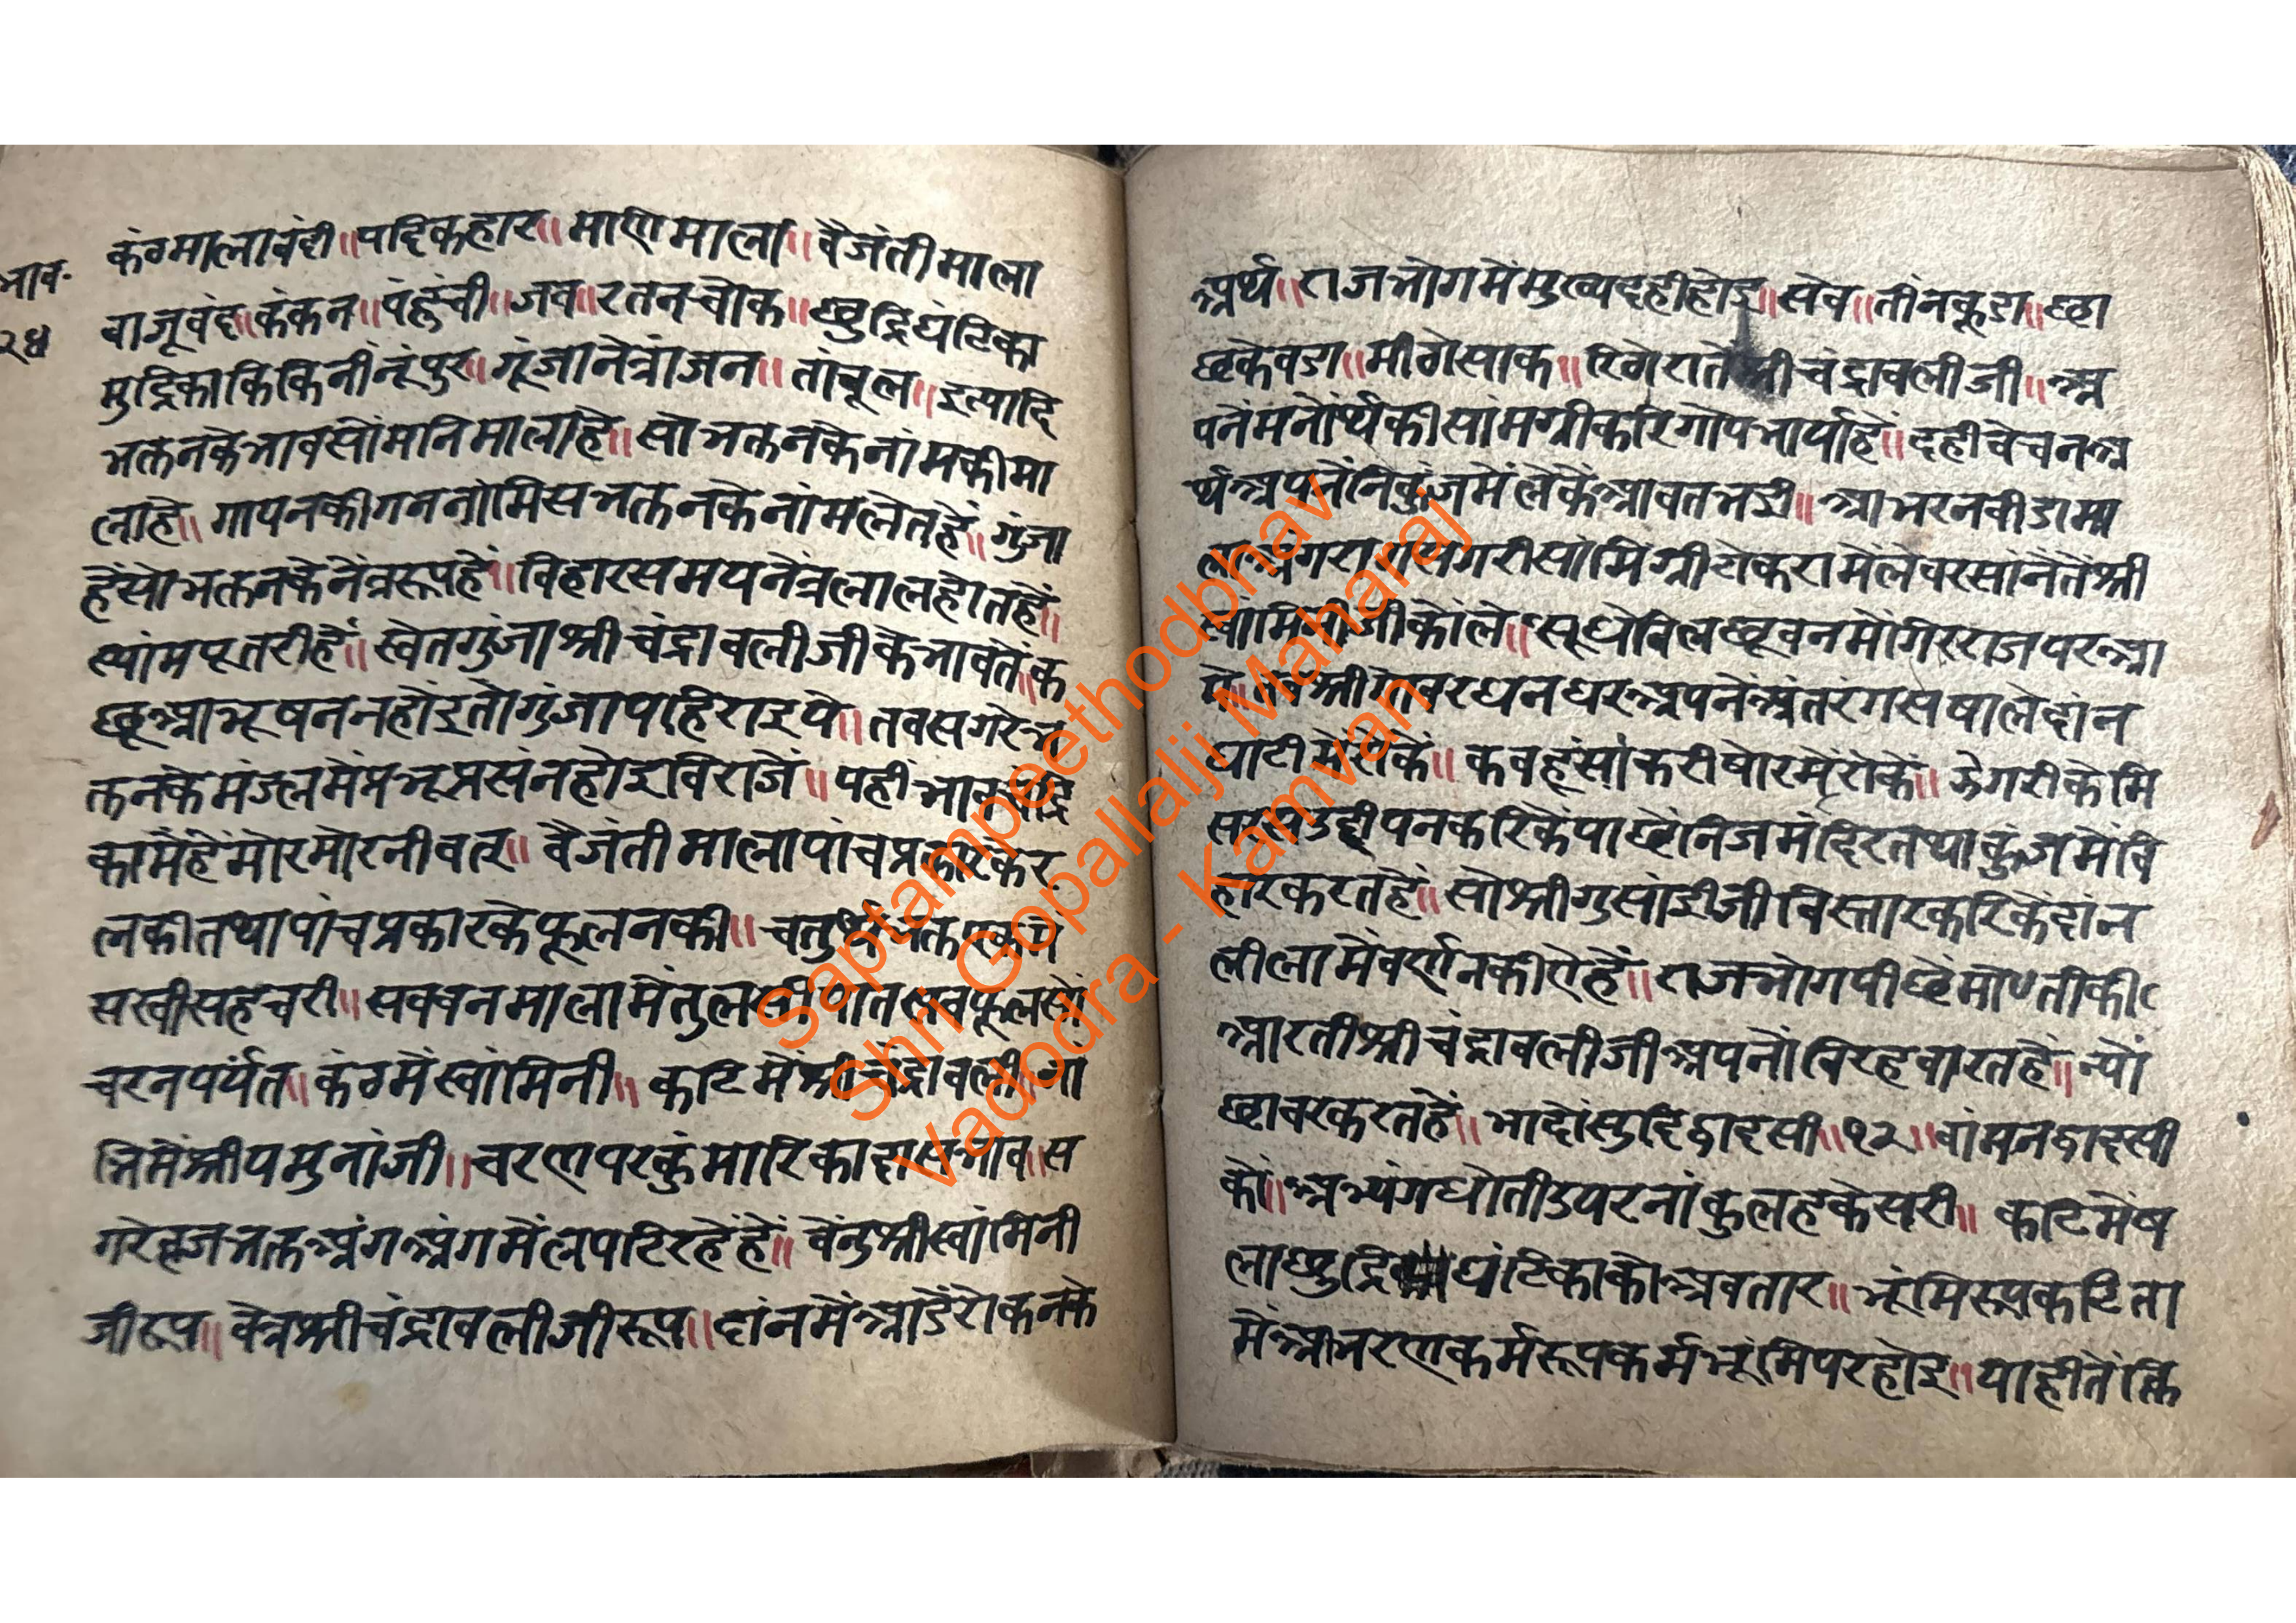 भाव॰
२४
कंठमालाबंदी॥पदिकहार॥माणिमाला॥वैजंतीमाला
बाजूबंद॥कंकन॥पंहुंची॥जव॥रतनचोक॥छुद्रिघंटिका
मुद्रिकाकिंकिनींनूंपुर॥गूंजानेत्रांजन॥तांबूल॥इत्यादि
भक्तनकेभावसोंमनिमालाहे॥सोभक्तनकेनांमकीमा
लाहे॥गोपनकीगननांमिसभक्तनकेनांमलेतहें॥गुंजा
हेंसोभक्तनकेनेंत्ररूपहें॥विहारसमयनेंत्रलालहोतहें॥
स्यांमपूतरीहें॥स्वेतगुंजाश्रीचंद्रावलीजीकेभावतें॥क
छूआभूषननहोंइतोगुंजापहिराइये॥तबसगरेभ
क्तनकेमंडलमेंप्रभूप्रसंनहोइविराजें॥यहीभाव
कामेंहेंमोरमोरनीवत्॥वैजंतीमालापांचप्रकारकेर
लकीतथापांचप्रकारकेफूलनकी॥चतुर्थभक्त
सखीसहचरी॥सबबनमालामेंतुलसीपातसबफूलसों
चरनपर्यंत॥कंठमेंस्वांमिनी॥कटिमेंश्रीचंद्रावली॥गों
निमेंश्रीयमुनांजी॥चरणपरकुंमारिकादासभाव॥स
गरेव्रजभक्तअंगअंगमेंलपटिरहेंहें॥वेंनुश्रीस्वांमिनी
जीरूप॥वेत्रश्रीचंद्रावलीजीरूप॥दांनमेंआडेंरोकनके
अर्थ॥राजभोगमेंमुख्यदहीहोइ॥सेव॥तींनकूडा॥छा
छकेवडा॥मीठोसाक॥श्रीचंद्रावलीजी॥अ
पनेंमनोर्थकीसांमग्रीकरिगोपभार्याहें॥दहीबेचनअ
र्थअपनेंनिकुंजमेंलेकेंआवतभई॥आभरनबीडामा
लाअंगरागसगरीसांमिग्रीटोकरामेंलेबरसांनेंतेंश्री
स्वांमिनीजीकोंले॥सूधेबिलछूबनमोंगिरराजपरआ
ये॥तबश्रीगोवरधनधरअपनेंअंतरंगसषालेदांन
घाटीमेंरोकें॥कबहूंसांकरीषोरमेंरोकें॥झेगरीकेमि
सरसउद्दीपनकरिकेंपाछेंनिजमंदिरतथाकुंजमेंवि
हारकरतहें॥सोश्रीगुसांईजीविस्तारकरिकेंदांन
लीलामेंवर्णनकीऐहें॥राजभोगपीछेंमोतीकी
आरतीश्रीचंद्रावलीजीअपनोंविरहवारतहें॥न्यों
छावरकरतहें॥भादोंसुदिद्वादसी॥१२॥वांमनद्वादसी
कों॥अभ्यंगधोतीउपरनांकुलहकेसरी॥कटिमेंष
लाछुद्रिघंटिकाकोअवतार॥भूंमिरूपकटिता
मेंआभरणकर्मरूपकर्मभूंमिपरहोइ॥याहीतेंक्ति
Saptampeethodbhav
Shri Gopallalji Maharaj
Vadodra - Kamvan